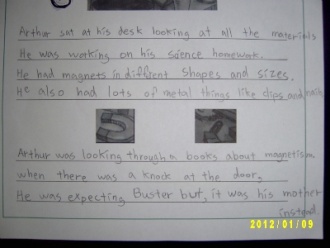 Arthur sat at his desk looking at all the materials
He was working on his science homework.
He had magnets in different shapes and sizes.
He also had lots of metal things like clips and nails
Arthur was looking through a books about magnetism
when there was a knock at the door.
He was expecting Buster but, it was his mother
instead.
2012/01/09